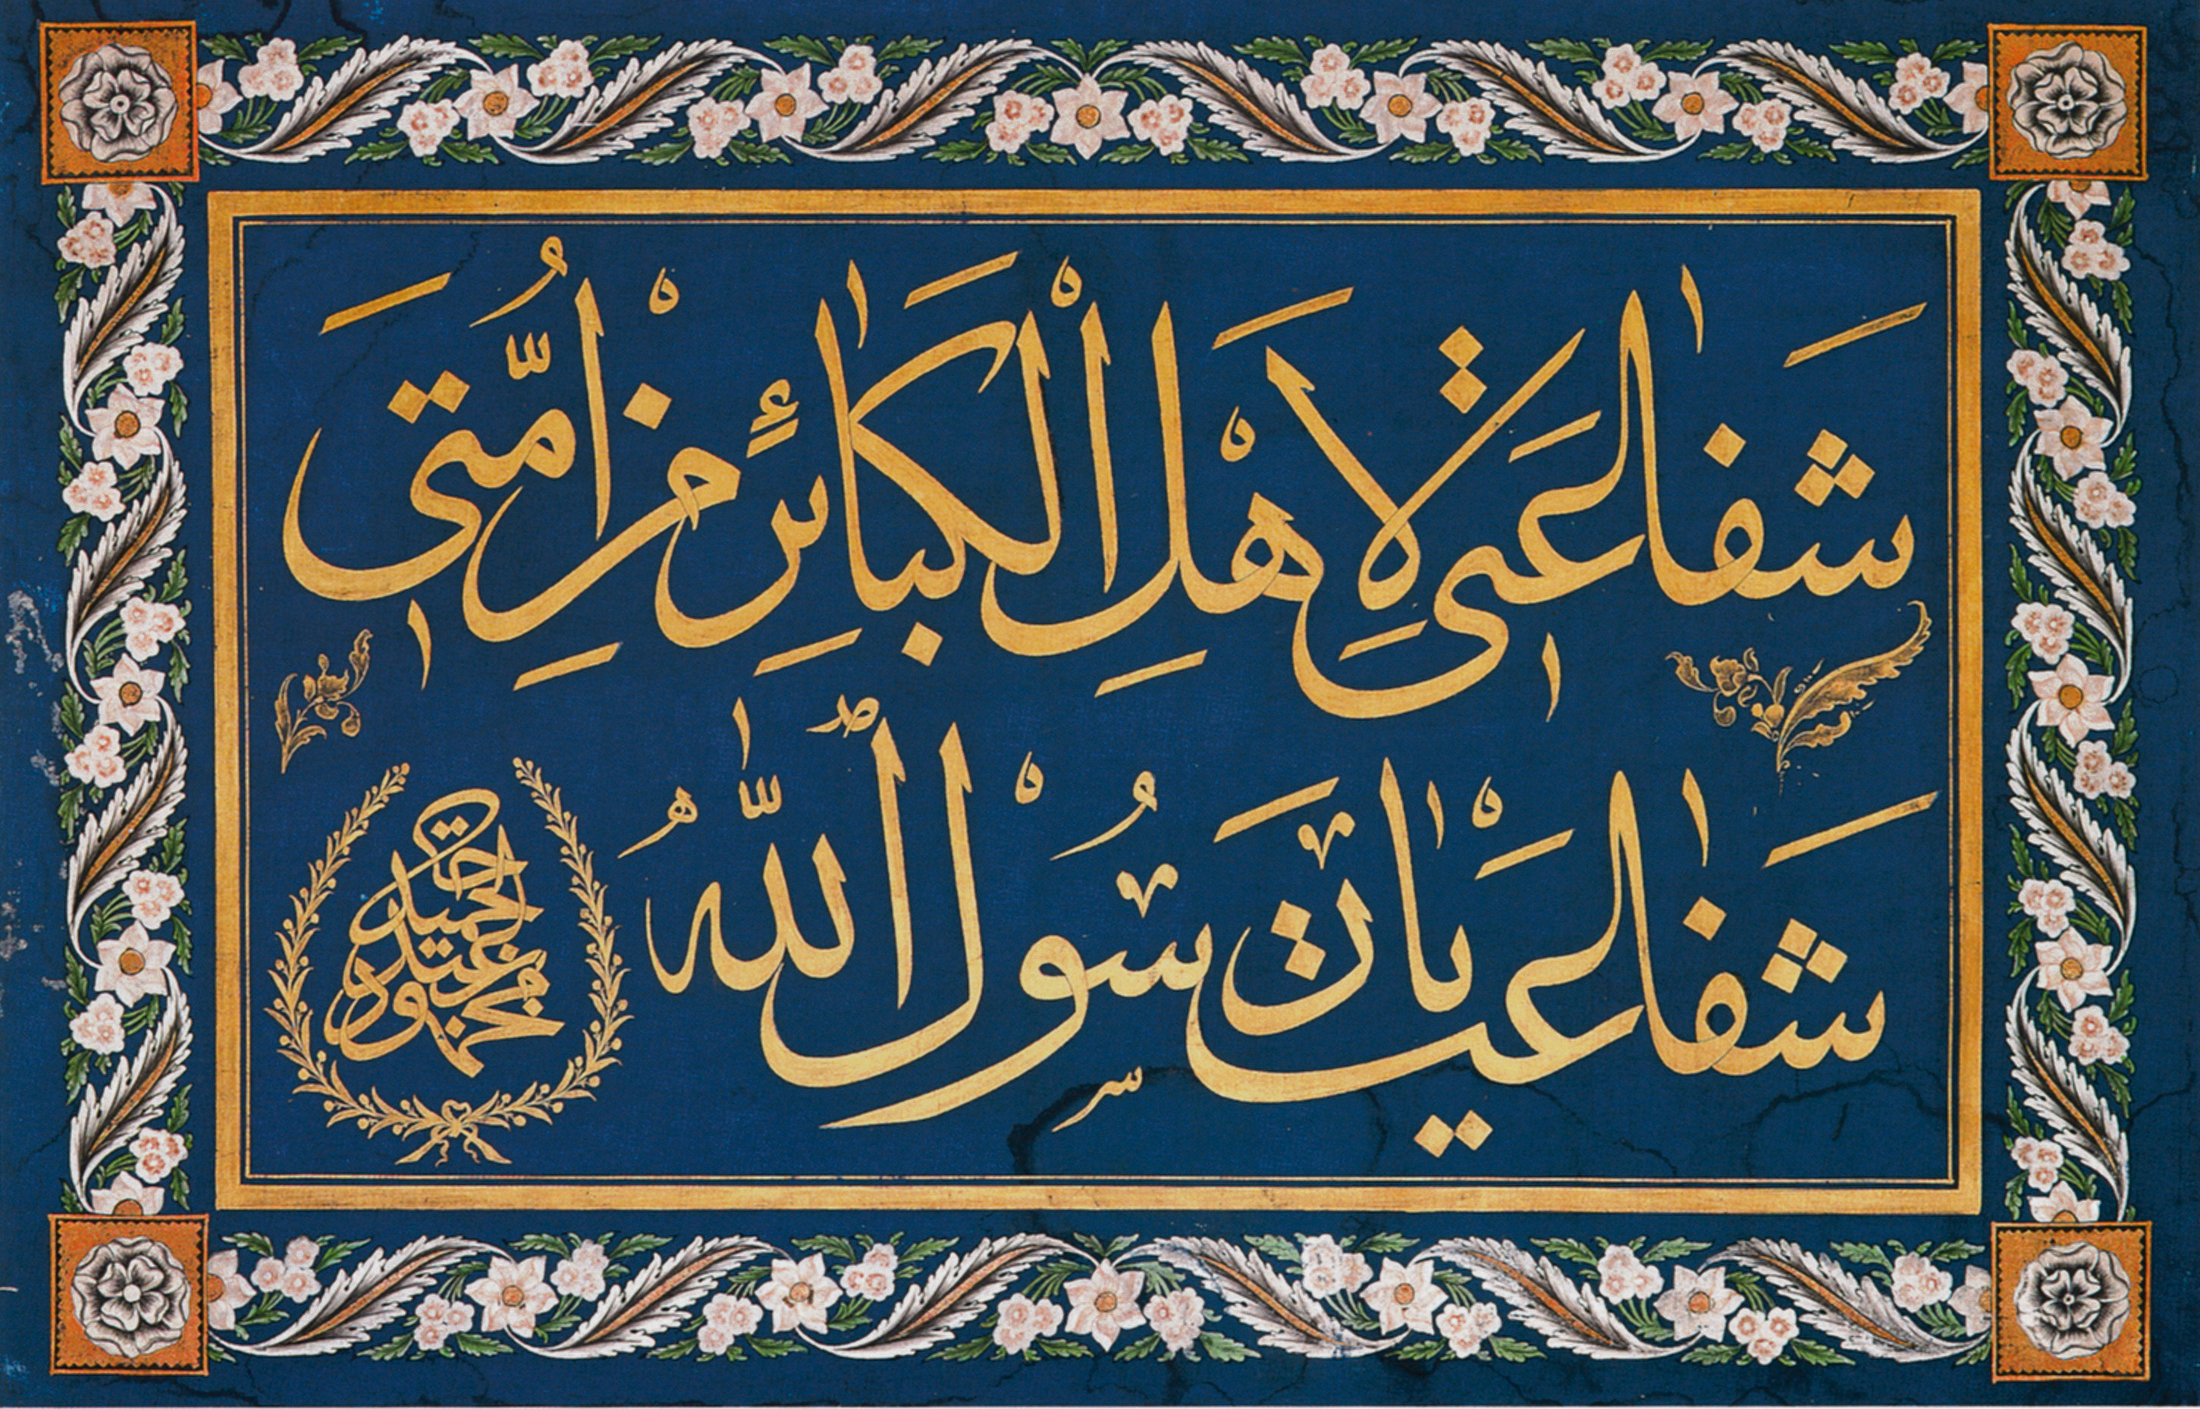 شَفَاعَتِى لِاَهْلِ الْكَبَائِرِ مِنْ اُمَّتِى
شَفَاعَتْ يَا رَسُولَ اللّٰهُ
محمود عبد الحميد خان